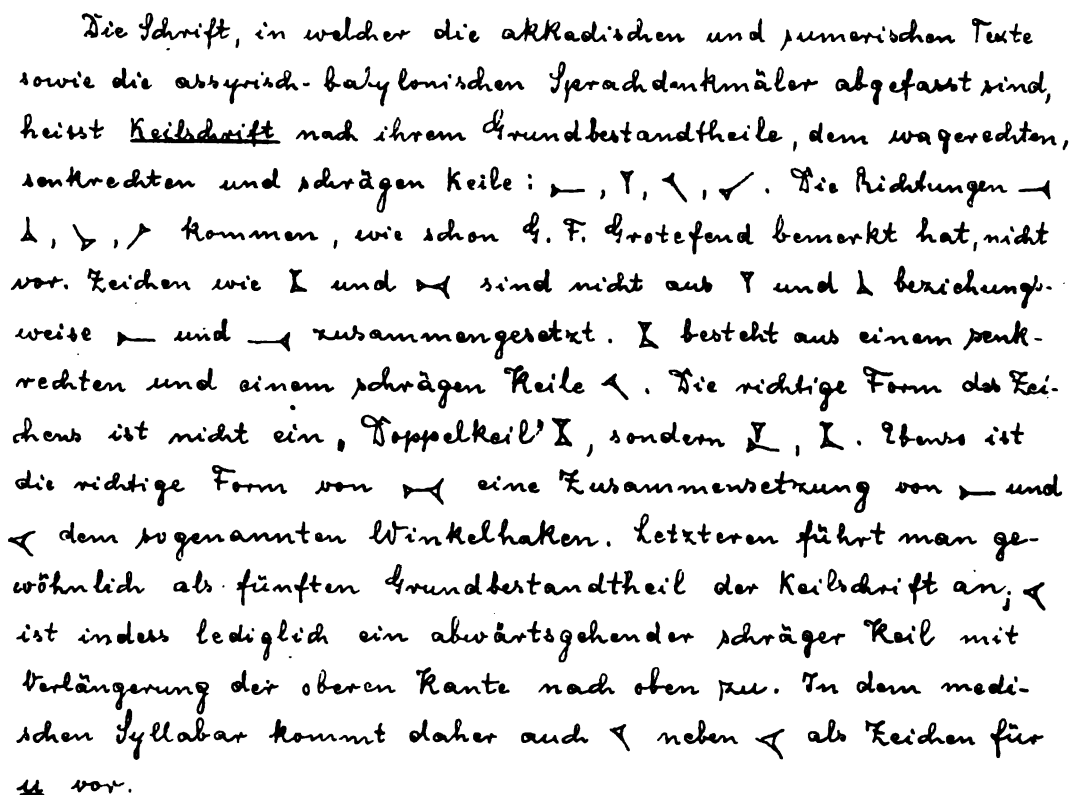 Die Schrift, in welcher die akkadischen und sumerischen Texte
sowie die assyrisch-babylonischen Sprachdenkmäler abgefasst sind,
heisst Keilschrift nach ihrem Grundbestandtheile, dem wagerechten,
senkrechten und schrägen Keile: 𐏑, 𒁹, 𒀹, 𒀺. Die Richtungen
, , kommen, wie schon G. F. Grotefend bemerkt hat, nicht
vor. Zeichen wie und sind nicht aus 𒁹 und beziehungs-
weise und zusammengesetzt. besteht aus einem senk-
rechten und einem schrägen Keile 𒀹. Die richtige Form des Zei-
chens ist nicht ein „Doppelkeil“ , sondern , . Ebenso ist
die richtige Form von eine Zusammensetzung von und
𒌋 dem sogenannten Winkelhaken. Letzteren führt man ge-
wöhnlich als fünften Grundbestandtheil der Keilschrift an; 𒌋
ist indess lediglich ein abwärtsgehender schräger Keil mit
Verlängerung der oberen Kante nach oben zu. In dem medi-
schen Syllabar kommt daher auch 𒀹 neben 𒌋 als Zeichen für
u vor.